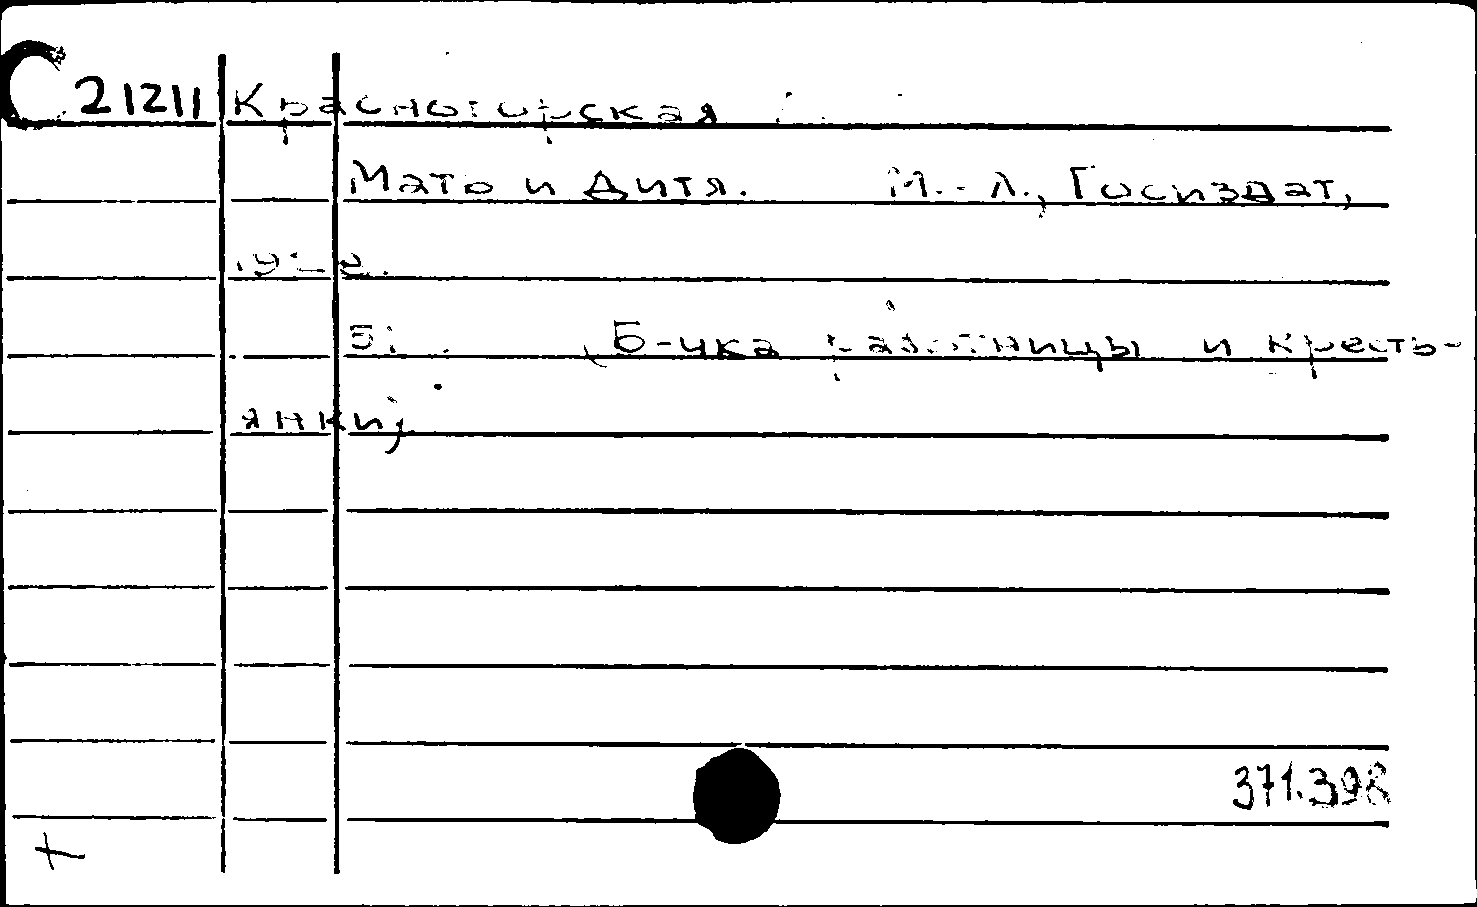 С 21211 Красногорская
Мать и дитя. М.-Л., Госиздат,
(Б-чка работницы и кресть-
янки)
371.398
+